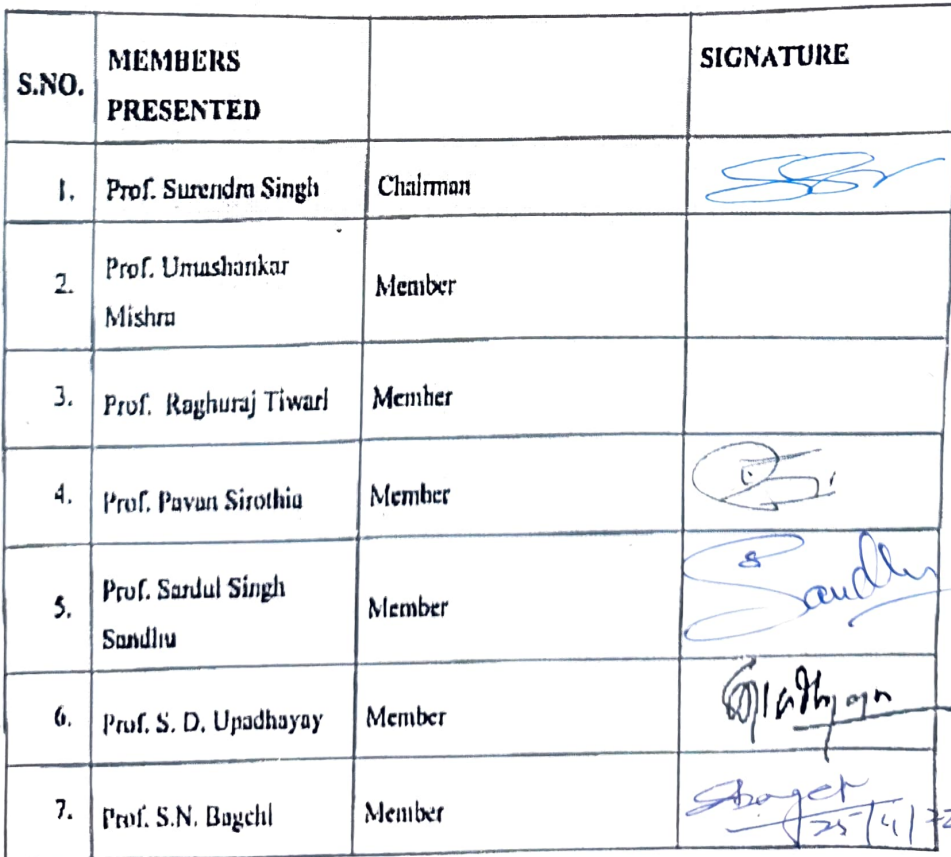 S.NO. MEMBERS PRESENTED SIGNATURE
1. Prof. Surendra Singh Chairman
2. Prof. Umashankar Mishra Member
3. Prof. Raghuraj Tiwari Member
4. Prof. Pavan Sirothia Member
5. Prof. Sardul Singh Sandhu Member Sandhu
6. Prof. S. D. Upadhayay Member
7. Prof. S.N. Bagchi Member 25/4/22